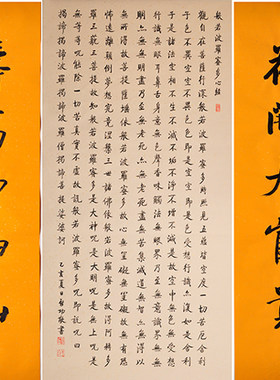 般若波羅蜜多心經
觀自在菩薩行深般若波羅蜜多時照見五蘊皆空度一切苦厄舍利
子色不異空空不異色色即是空空即是色受想行識亦復如是舍利
子是諸法空相不生不滅不垢不淨不增不減是故空中無色無受想
行識無眼耳鼻舌身意無色聲香味觸法無眼界乃至無意識界無無
明亦無無明盡乃至無老死亦無老死盡無苦集滅道無智亦無得以
無所得故菩提薩埵依般若波羅蜜多故心無罣礙無罣礙故無有恐
怖遠離顛倒夢想究竟涅槃三世諸佛依般若波羅蜜多故得阿耨多
羅三藐三菩提故知般若波羅蜜多是大神咒是大明咒是無上咒是
無等等咒能除一切苦真實不虛故說般若波羅蜜多咒即說咒曰
揭諦揭諦波羅揭諦波羅僧揭諦菩提娑婆訶
乙亥夏日啟功敬書